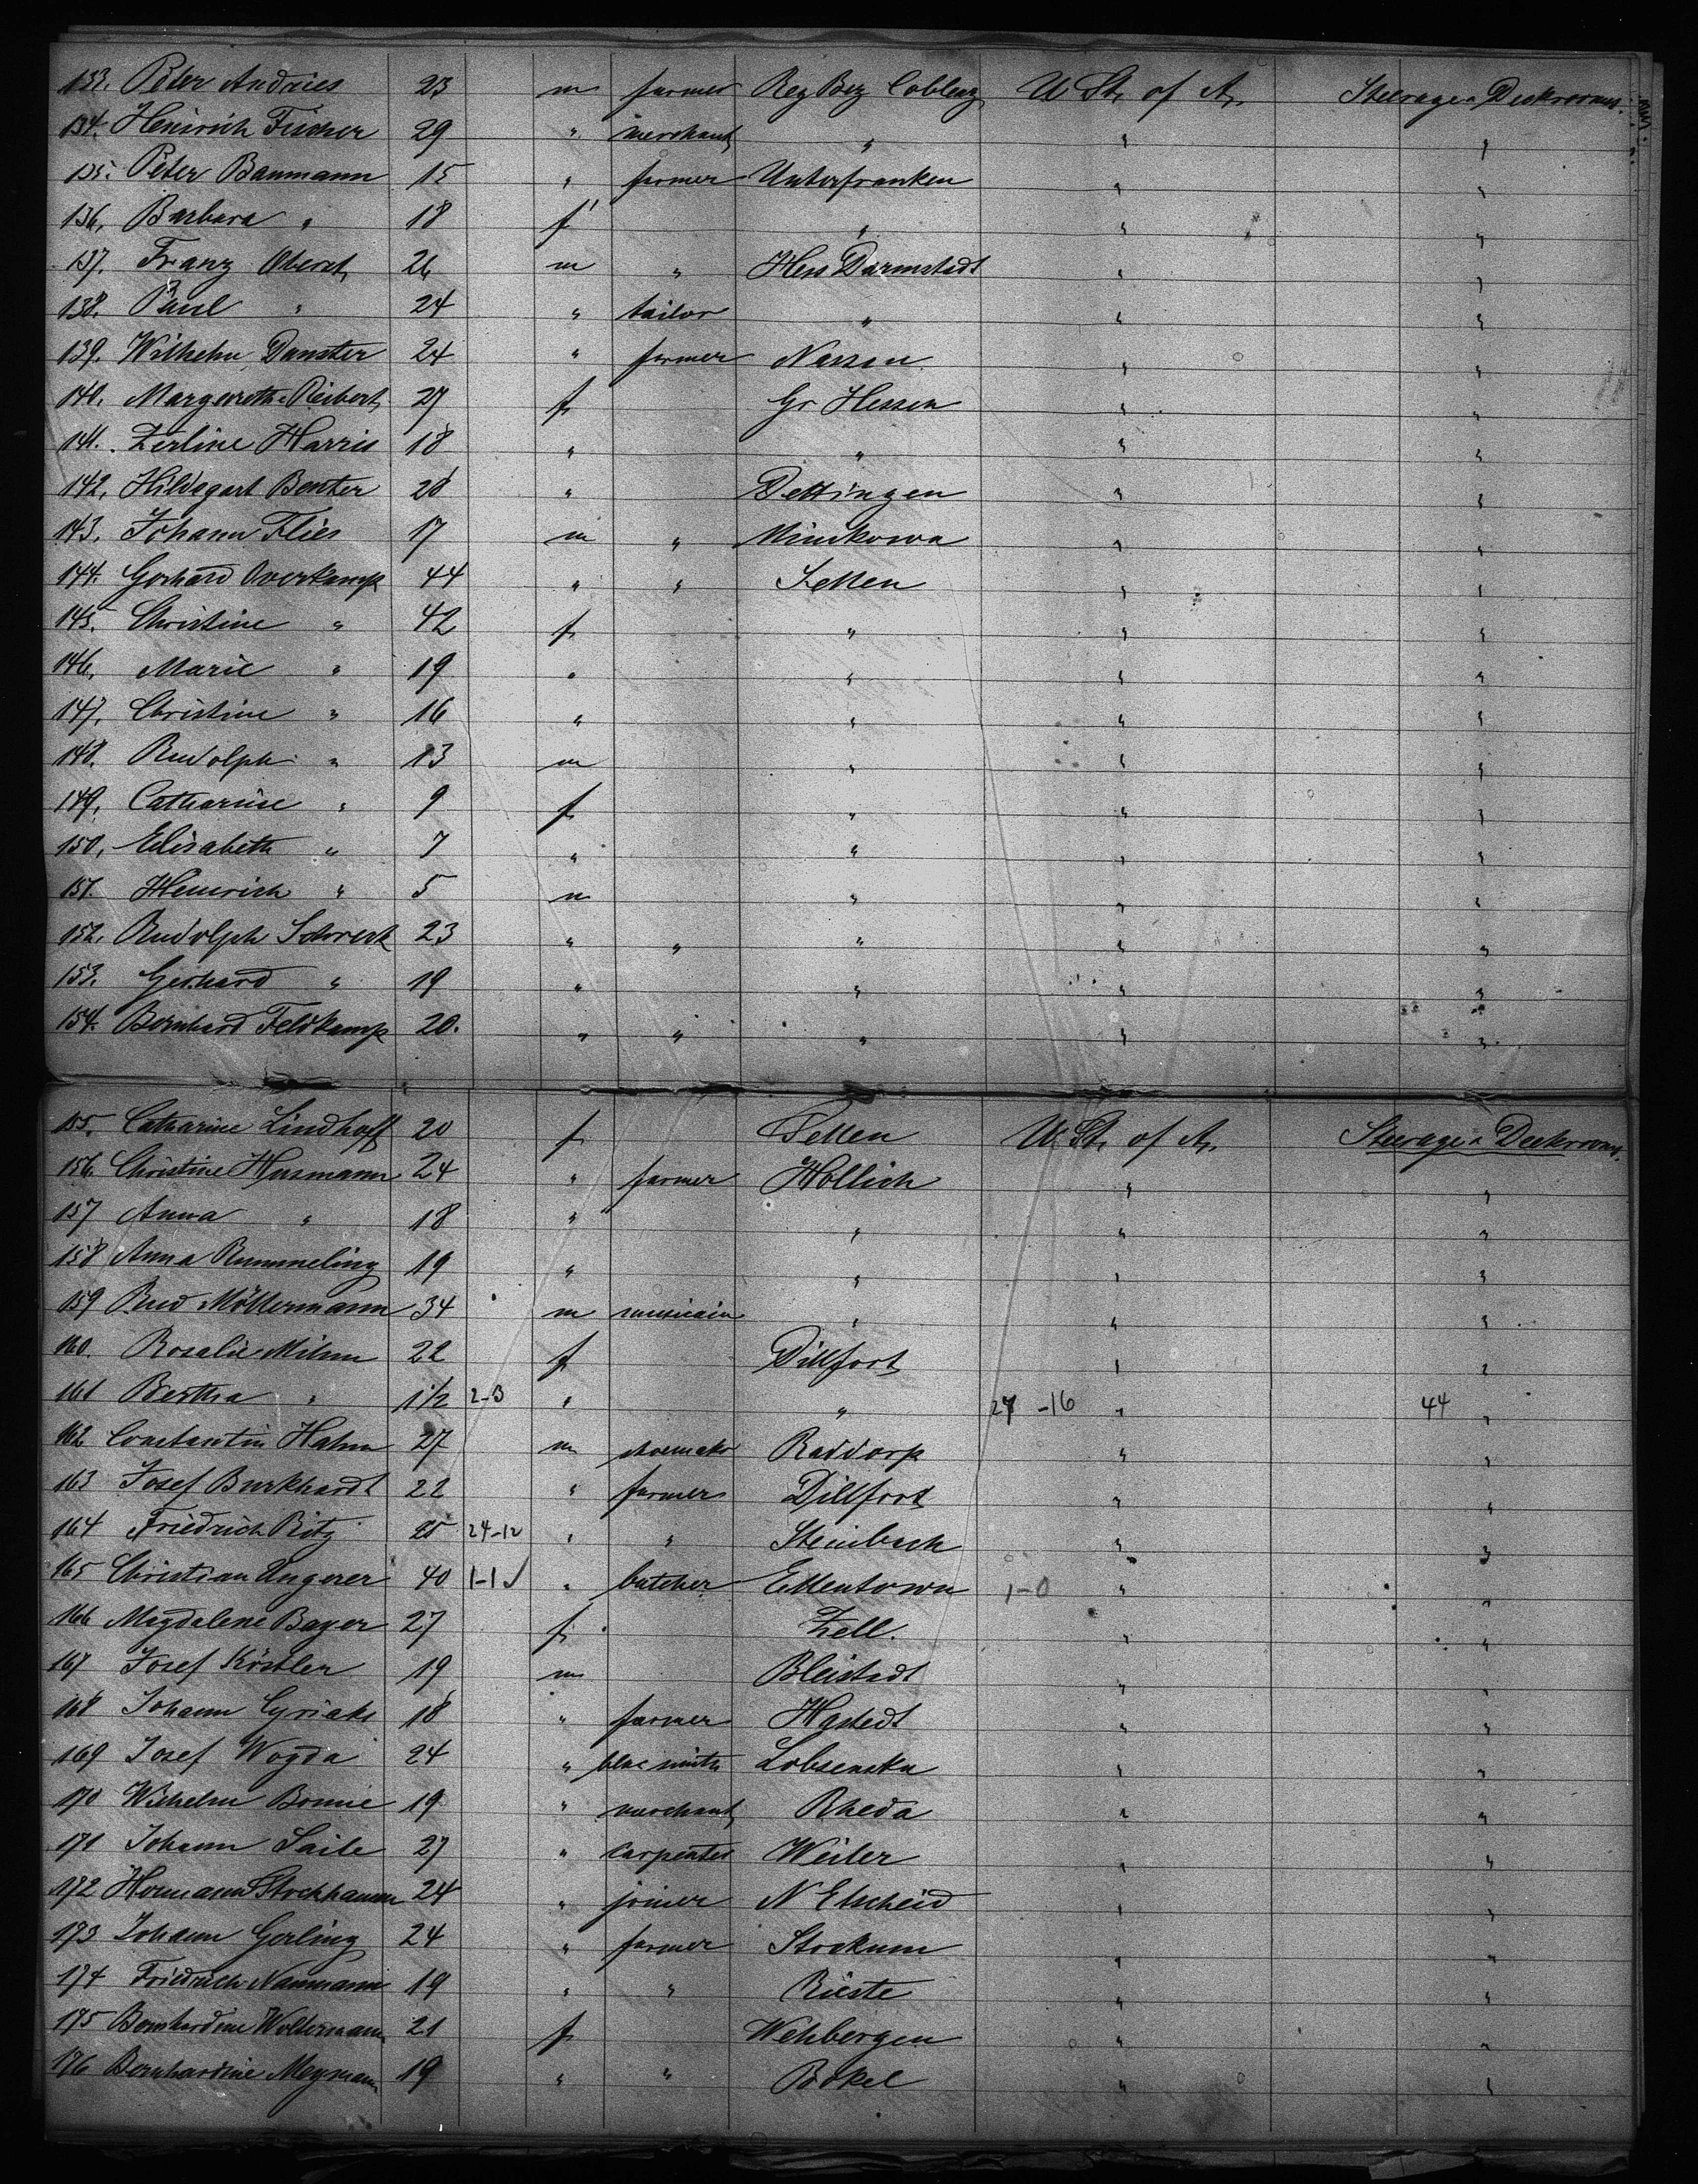 133. Peter Andries 23 m farmer Reg Bez Coblenz U. St. of A. Steerage & Deckrooms.
134. Heinrich Fischer 29 " merchant " " "
135. Peter Baumann 15 " farmer Unterfranken " "
136. Barbara " 18 f " " "
137. Franz Oberst 26 m " Hess Darmstadt " "
138. Paul " 24 " tailor " " "
139. Wilhelm Danster 24 " farmer Nassau " "
140. Margareth Reibert 27 f Gr Hessen " "
141. Zerline Harris 18 " " " "
142. Hildegart Benter 20 " Dettingen " "
143. Johann Flies 17 m " Minikowa " "
144. Gerhard Overkamp 44 " " Sellen " "
145. Christine " 42 f " " "
146. Marie " 19 " " " "
147. Christine " 16 " " " "
148. Rudolph " 13 m " " "
149. Catharine " 9 f " " "
150. Elisabeth " 7 " " " "
151. Heinrich " 5 m " " "
152. Rudolph Schreck 23 " " " " "
153. Gerhard " 19 " " " "
154. Bernhard Feldkamp 20. " " " " "
155. Catharine Lindhoff 20 f Sellen U. St. of A. Steerage & Deckrooms.
156. Christine Husmann 24 " farmer Hollich " "
157 Anna " 18 " " " "
158 Anna Rummeling 19 " " " "
159 Bud Möllermann 34 m musicain " " "
160. Rosalie Milnn 22 f Dillfort " "
161 Bertha " 1 1/2 2-3 " " 27 -16 " 44 "
162 Constantin Hahn 27 m shoemaker Raddorp " "
163 Josef Burkhardt 22 " farmer Dillfort " "
164 Friedrich Bitz 25 24-12 " " Steinbach " "
165 Christian Ungerer 40 1-1 ✓ " butcher Ellentown 1-0 " "
166 Magdalene Bayer 27 f Zell. " "
167 Josef Köstler 19 m Bleistadt " "
168 Johann Cyriaks 18 " farmer Hastedt " "
169 Josef Wogda 24 " blacsmith Lobsenska " "
170 Wilhelm Bonnie 19 " merchant Rheda " "
171 Johann Saile 27 " carpenter Weiler " "
172 Hermann Stockhamm 24 " joiner N Elscheid " "
173 Johann Gerling 24 " farmer Stockum " "
174 Friedrich Naumann 19 " " Rieste " "
175 Bernhardine Woltermann 21 f Wehbergen " "
176 Bernhardine Meymann 19 " " Bokel " "